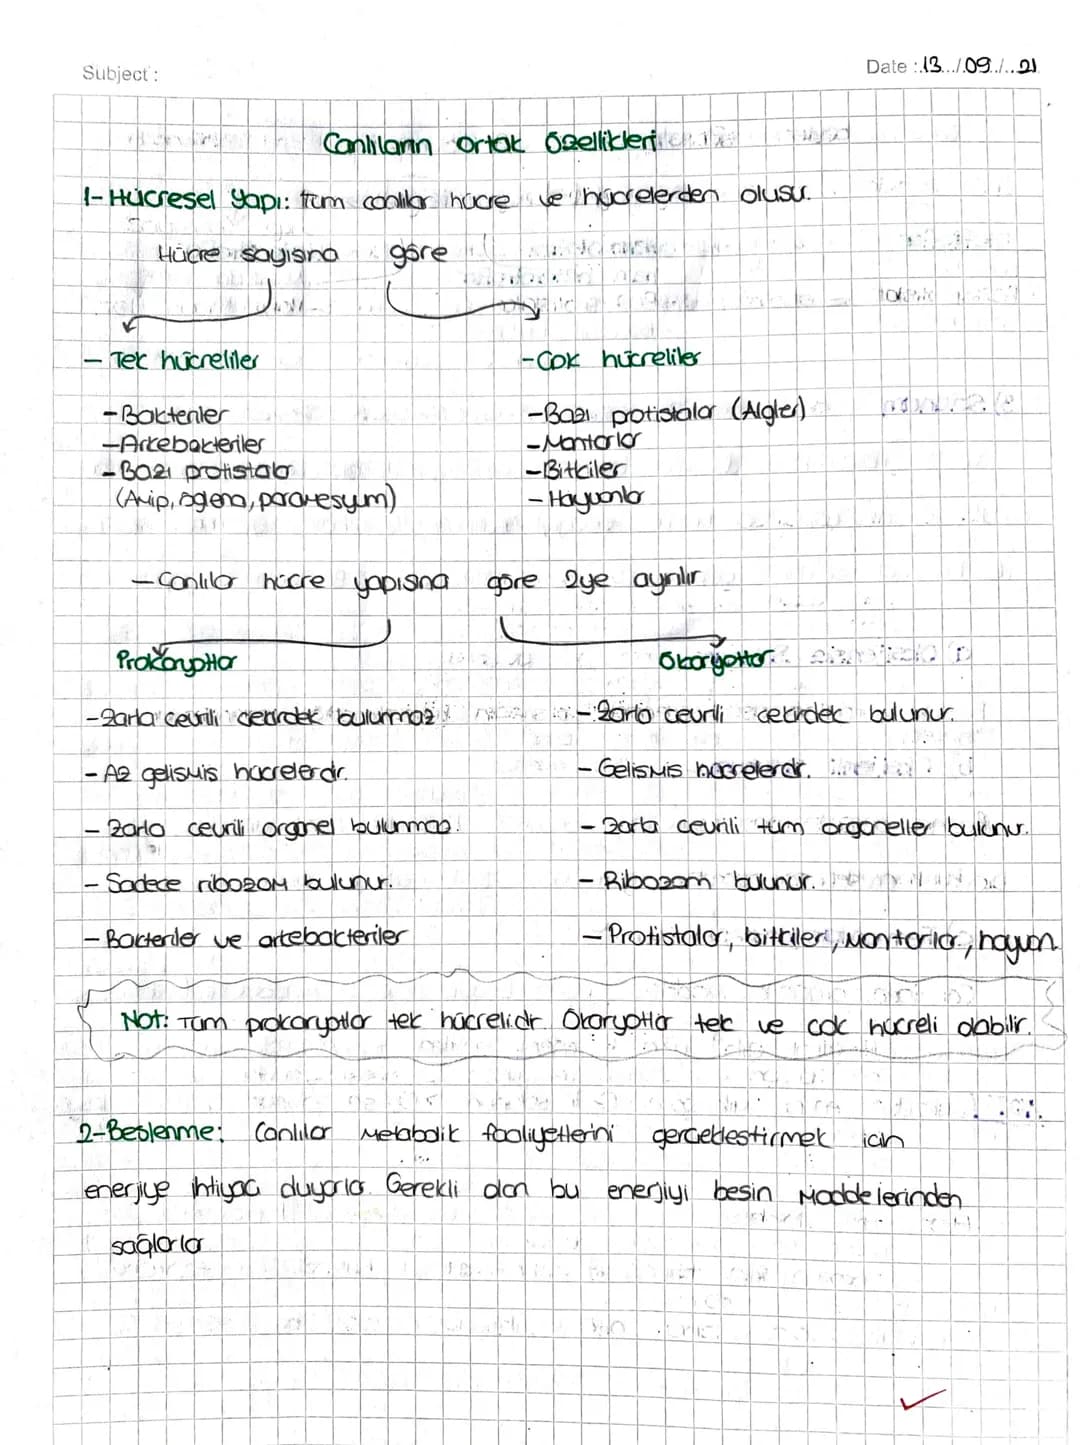 Subject :
Date : 13 / 09 / 21
Canlıların ortak özellikleri
1-Hücresel yapı: tüm canlılar hücre ve hücrelerden olusu.
Hücre sayısına göre
- Tek hücreliler
- Cok hücreliler
- Bakteriler
- Arkebakteriler
- Bazı protistalar
(Amip, öglena, paramesyum)
- Bazı protistalar (Algler)
- Mantarlar
- Bitkiler
- Hayvanlar
- Canlılar hücre yapısına göre 2ye ayrılır
Prokaryotlar
Ökaryotlar
- Zarla cevrili cekirdek bulunmaz
- Az gelismis hücrelerdir.
- Zarla cevrili organel bulunmaz.
- Sadece ribozom bulunur.
- Bakteriler ve arkebakteriler
- Zarla cevrili cekirdek bulunur.
- Gelismis hücrelerdir.
- Zarla cevrili tüm organeller bulunur.
- Ribozom bulunur.
- Protistalar, bitkiler, mantarlar, hayvan
Not: Tüm prokaryotlar tek hücrelidir. Ökaryotlar tek ve cok hücreli olabilir.
2-Beslenme: Canlılar metabolik faaliyetlerini gerceklestirmek icin
enerjiye ihtiyac duyarlar. Gerekli olan bu enerjiyi besin maddelerinden
sağlarlar